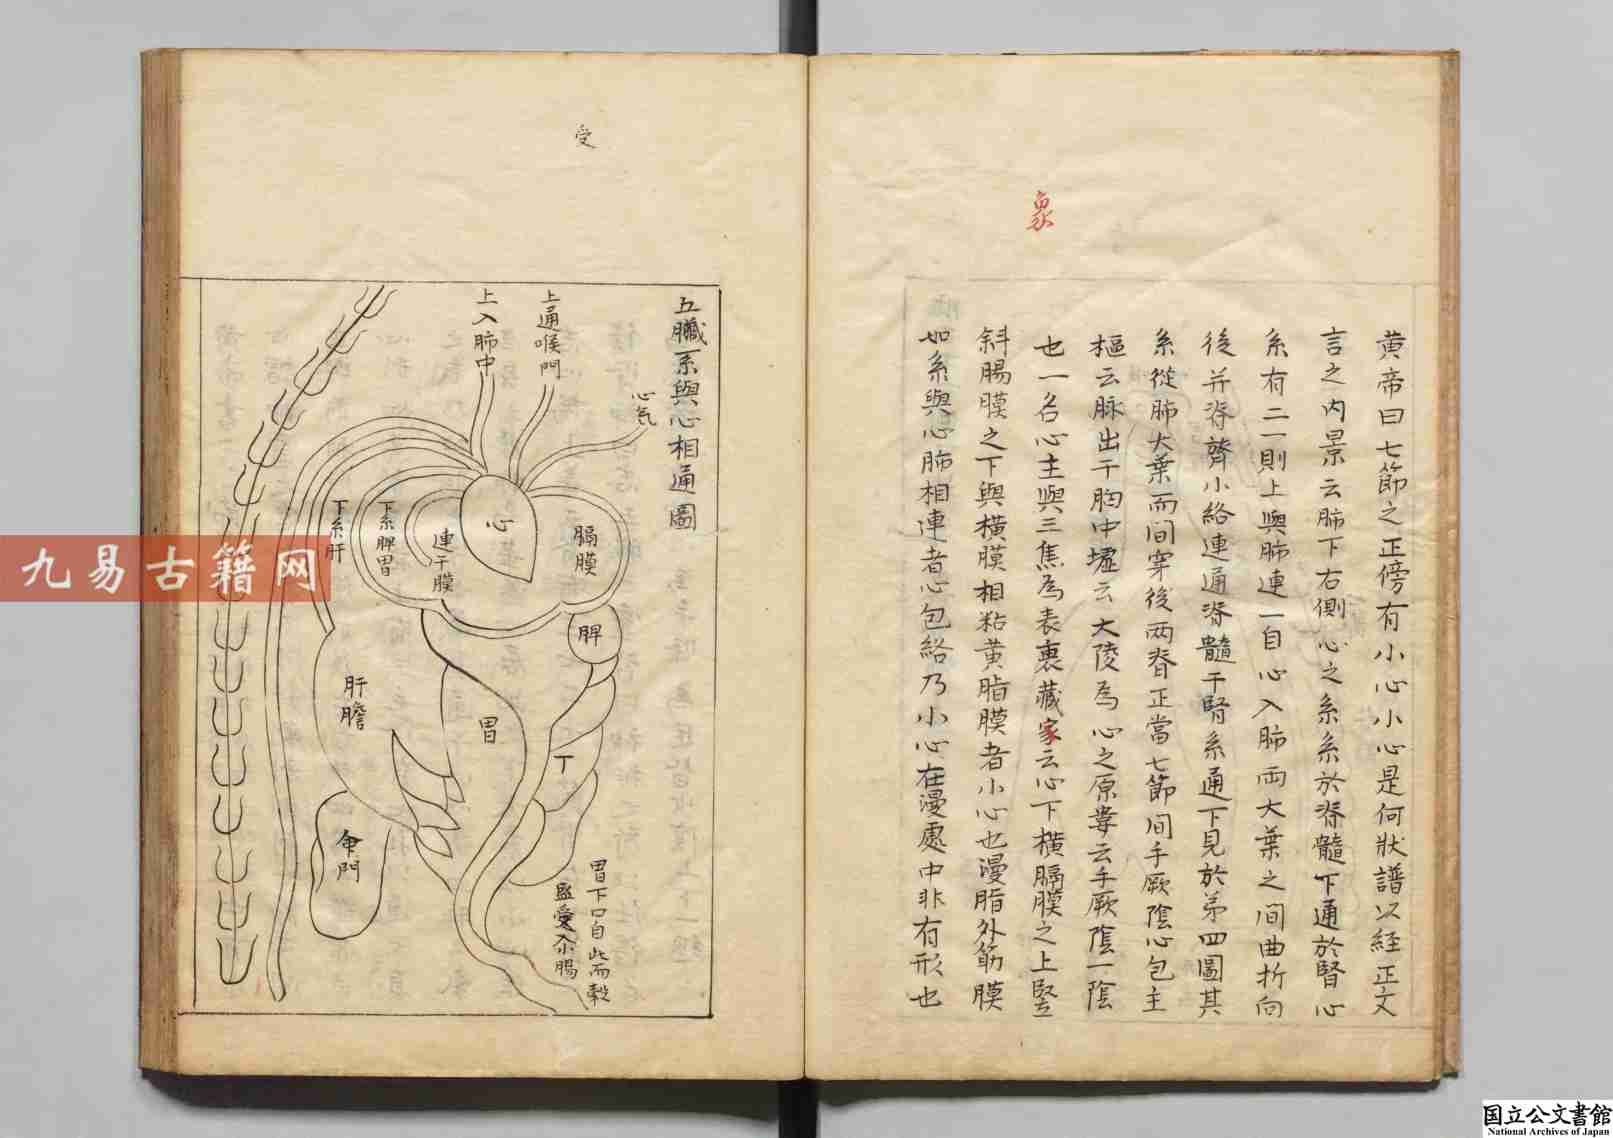 黄帝曰七節之正傍有小心小心是何狀譜以経正文
言之内景云肺下右側心之系系於脊髓下通於腎心
系有二一則上與肺連一自心入肺兩大葉之间曲折向
後并脊膂小絡連通脊髓干腎系通下見於第四圖其
系從肺大葉而间穿後两脊正當七節间手厥陰心包主
樞云脉出干胸中墟云大陵為心之原嵜云手厥陰一陰
也一名心主與三焦為表裏藏家云心下横膈膜之上竪
斜腸膜之下與横膜相粘黄脂膜者小心也漫脂外筋膜
如系與心肺相連者心包絡乃小心在漫處中非有形也
裏
受
五臟系與心相通圖
上通喉門
上入肺中
心氣
心
膈膜
連干膜
下系脾胃
下系肝
脾
肝膽
胃
丁
命門
胃下口自此而穀
盛受入小腸
九易古籍网
国立公文書館
National Archives of Japan